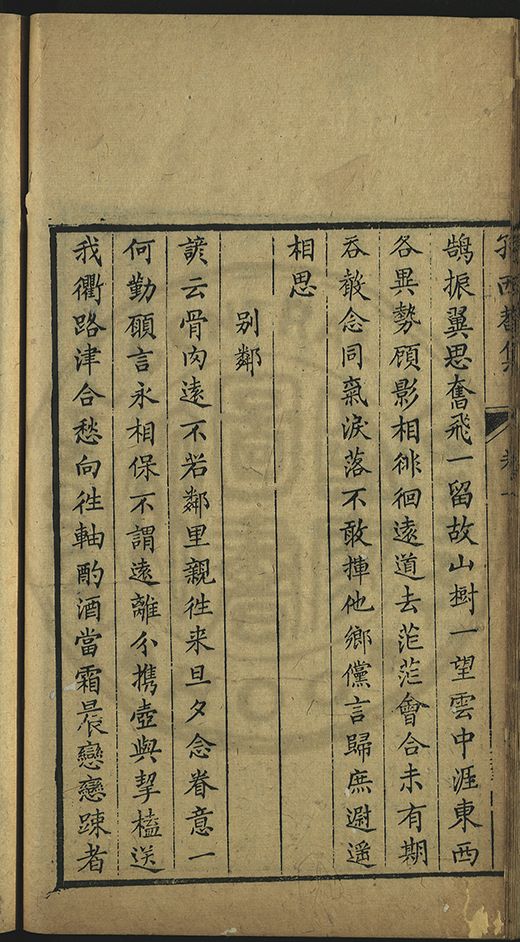 孫西菴集　卷一
鵠振翼思奮飛一留故山樹一望雲中涯東西
各異勢顧影相徘徊遠道去茫茫會合未有期
吞聲念同氣淚落不敢揮他鄉儻言歸庶遥
相思
别鄰
諺云骨肉遠不若鄰里親徃来旦夕念眷意一
何勤願言永相保不謂遠離分携壺與挈榼送
我衢路津合愁向徃軸酌酒當霜晨戀戀踈者